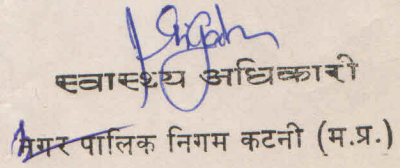 स्वास्थ्य अधिकारी
नगर पालिक निगम कटनी (म.प्र.)